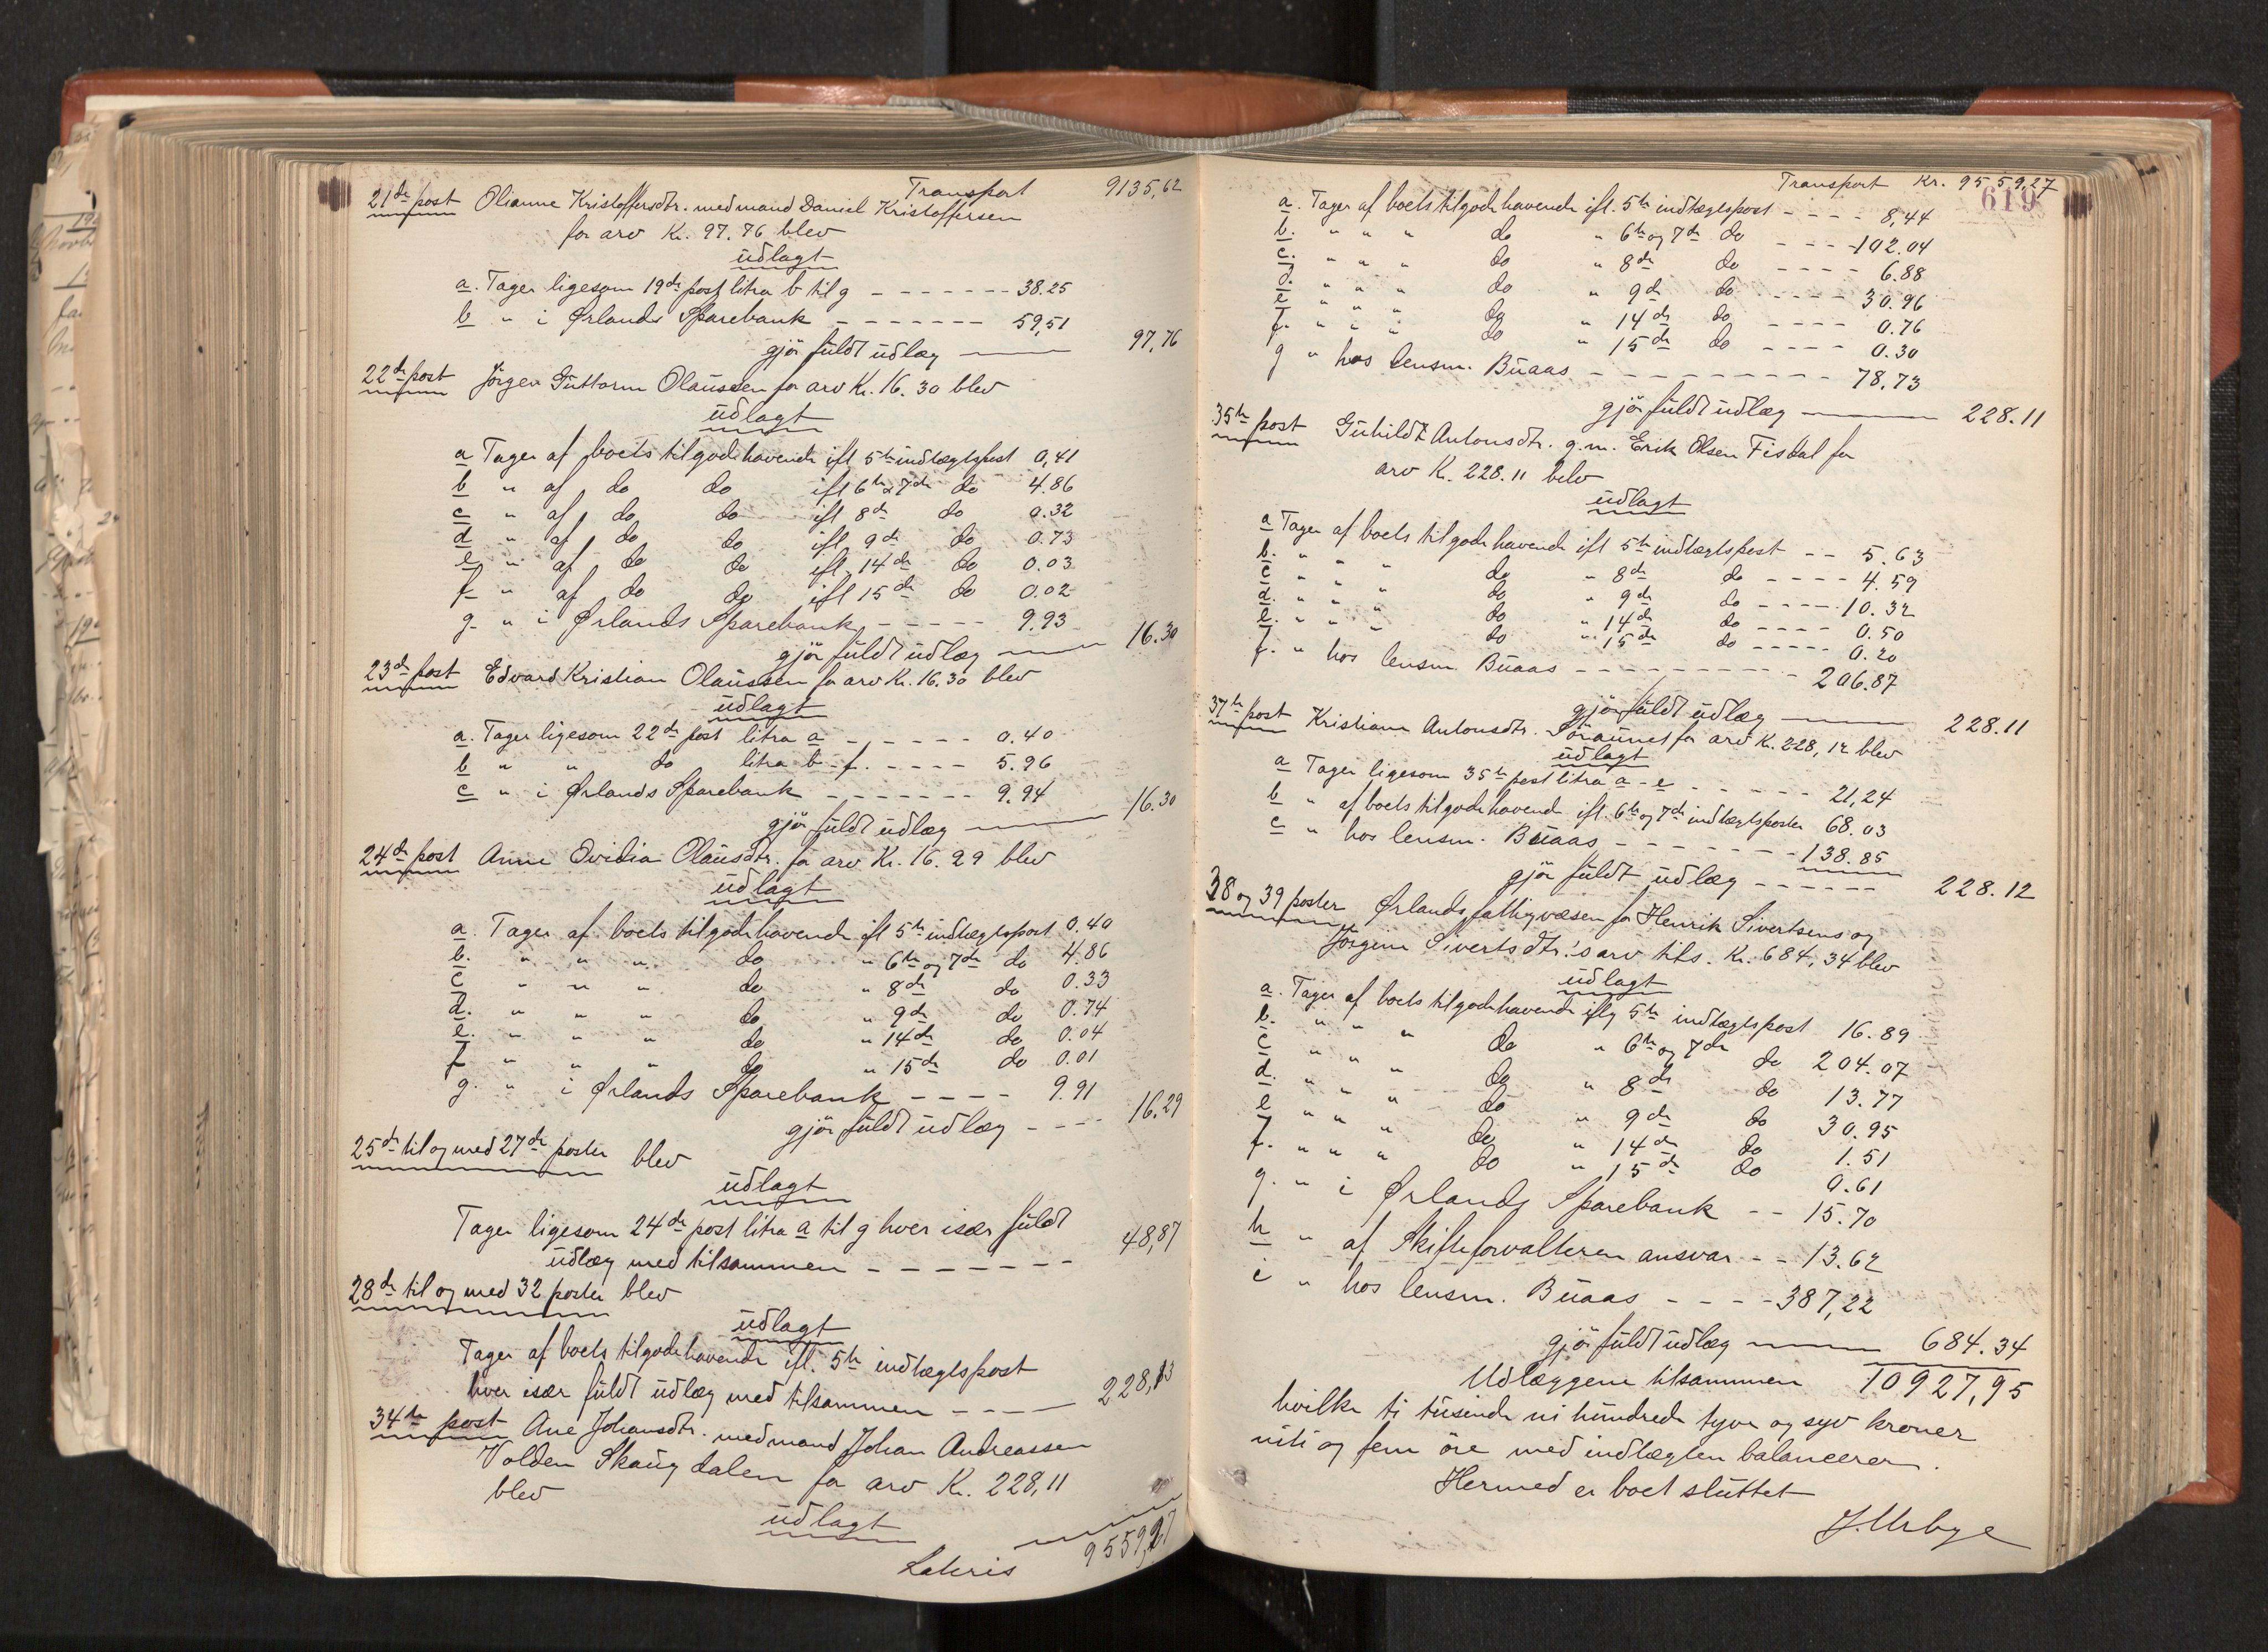 Transport 9135,62
21de post Olianne Kristoffersdtr. med mand Daniel Kristoffersen
for arv Kr. 97.76 blev
udlagt
a. Tager ligesom 19de post litra b til g - - - - - - - 38.25
b " i Ørlands Sparebank - - - - - - - 59,51
gjør fuldt udlæg —— 97,76
22de post Jörgen Guttorm Olaussen for arv Kr. 16.30 blev
udlagt
a Tager af boets tilgodehavende ifl 5te indtægtspost 0,41
b " af do do ifl 6te & 7de do 4.86
c " af do do ifl 8de do 0.32
d " af do do ifl 9de do 0.73
e " af do do ifl. 14de do 0.03
f " af do do ifl 15de do 0.02
g. " i Ørlands Sparebank - - - - - 9.93
gjør fuldt udlæg —— 16.30
23de post Edvard Kristian Olaussen for arv Kr. 16.30 blev
udlagt
a. Tager ligesom 22de post litra a - - - - - 0.40
b " " do litra b - f. - - - - 5.96
c " i Ørlands Sparebank - - - - - - - 9.94
gjør fuldt udlæg —— 16.30
24de post Anne Ovidia Olausdtr. for arv Kr. 16.29 blev
udlagt
a. Tager af boets tilgodehavende ifl 5te indtægtspost 0.40
b. " " " do " 6te og 7de do 4.86
c " " " do " 8de do 0.33
d. " " " do " 9de do 0.74
e. " " " do " 14de do 0.04
f " " " do " 15de do 0.01
g. " i Ørlands Sparebank - - - - 9.91
gjør fuldt udlæg - - - - 16.29
25de til og med 27de poster blev
udlagt
Tager ligesom 24de post litra a til g hver især fuldt
udlæg med tilsammen - - - - - - - 48,87
28de til og med 32 poster blev
udlagt
Tager af boets tilgodehavende ifl. 5te indtægtspost
hver især fuldt udlæg med tilsammen - - - - 228,13
34te post Ane Johansdtr. med mand Johan Andreassen
Volden Skaugdalen for arv Kr. 228,11
blev
udlagt
Lateris 9559,27
Transport Kr. 9559,27
619
a. Tager af boets tilgodehavende ifl. 5te indtægtspost - - - - 8,44
b. " " " do " 6te og 7de do - - - - 102.04
c. " " " do " 8de do - - - - 6.88
d. " " " do " 9de do - - - - 30.96
e " " " do " 14de do - - - - 0.76
f. " " " do " 15de do - - - - 0.30
g " hos lensm. Buaas - - - - - - - - - 78,73
gjør fuldt udlæg —— 228.11
35te post Guhildt Antonsdtr. g.m. Erik Olsen Fisdal for
arv Kr. 228.11 belv
udlagt
a Tager af boets tilgodehavende ifl 5te indtægtspost - - 5.63
b. " " " do " 8de do - - - - 4.59
c " " " do " 9de do - - - - 10.32
d. " " " do " 14de do - - - - 0.50
e. " " " do " 15de do - - - - 0.20
f. " hos lensm Buaas - - - - - - - - - 206.87
gjør fuldt udlæg —— 228.11
37te post Kristiane Antonsdtr. for arv Kr. 228,12 blev
udlagt
a Tager ligesom 35te post litra a - e - - - - - - 21,24
b " af boets tilgodehavende ifl. 6te og 7de indtægtsposter 68.03
c " hos lensm. Buaas - - - - - - - 138.85
gjør fuldt udlæg - - - - - - 228.12
38 og 39 poster Ørlands fattigvæsen for Henrik Sivertsens og
Jörgine Sivertsdtr.'s arv tils. Kr. 684,34 blev
udlagt
a. Tager af boets tilgodehavende iflg 5te indtægtspost 16.89
b. " " " do " 6te og 7de do 204.07
c " " " do " 8de do 13.77
d. " " " do " 9de do 30.95
e " " " do " 14de do 1.51
f. " " " do " 15de do 0.61
g. " i Ørlands Sparebank - - 15.70
h " af Skifteforvalteren ansvar - - 13.62
i " hos lensm. Buaas - - - - 387,22
gjør fuldt udlæg —— 684.34
Udlæggene tilsammen 10927,95
hvilke ti tusinde ni hundrede tyve og syv kroner
niti og fem öre med indtægten balancerer.
Hermed er boet sluttet